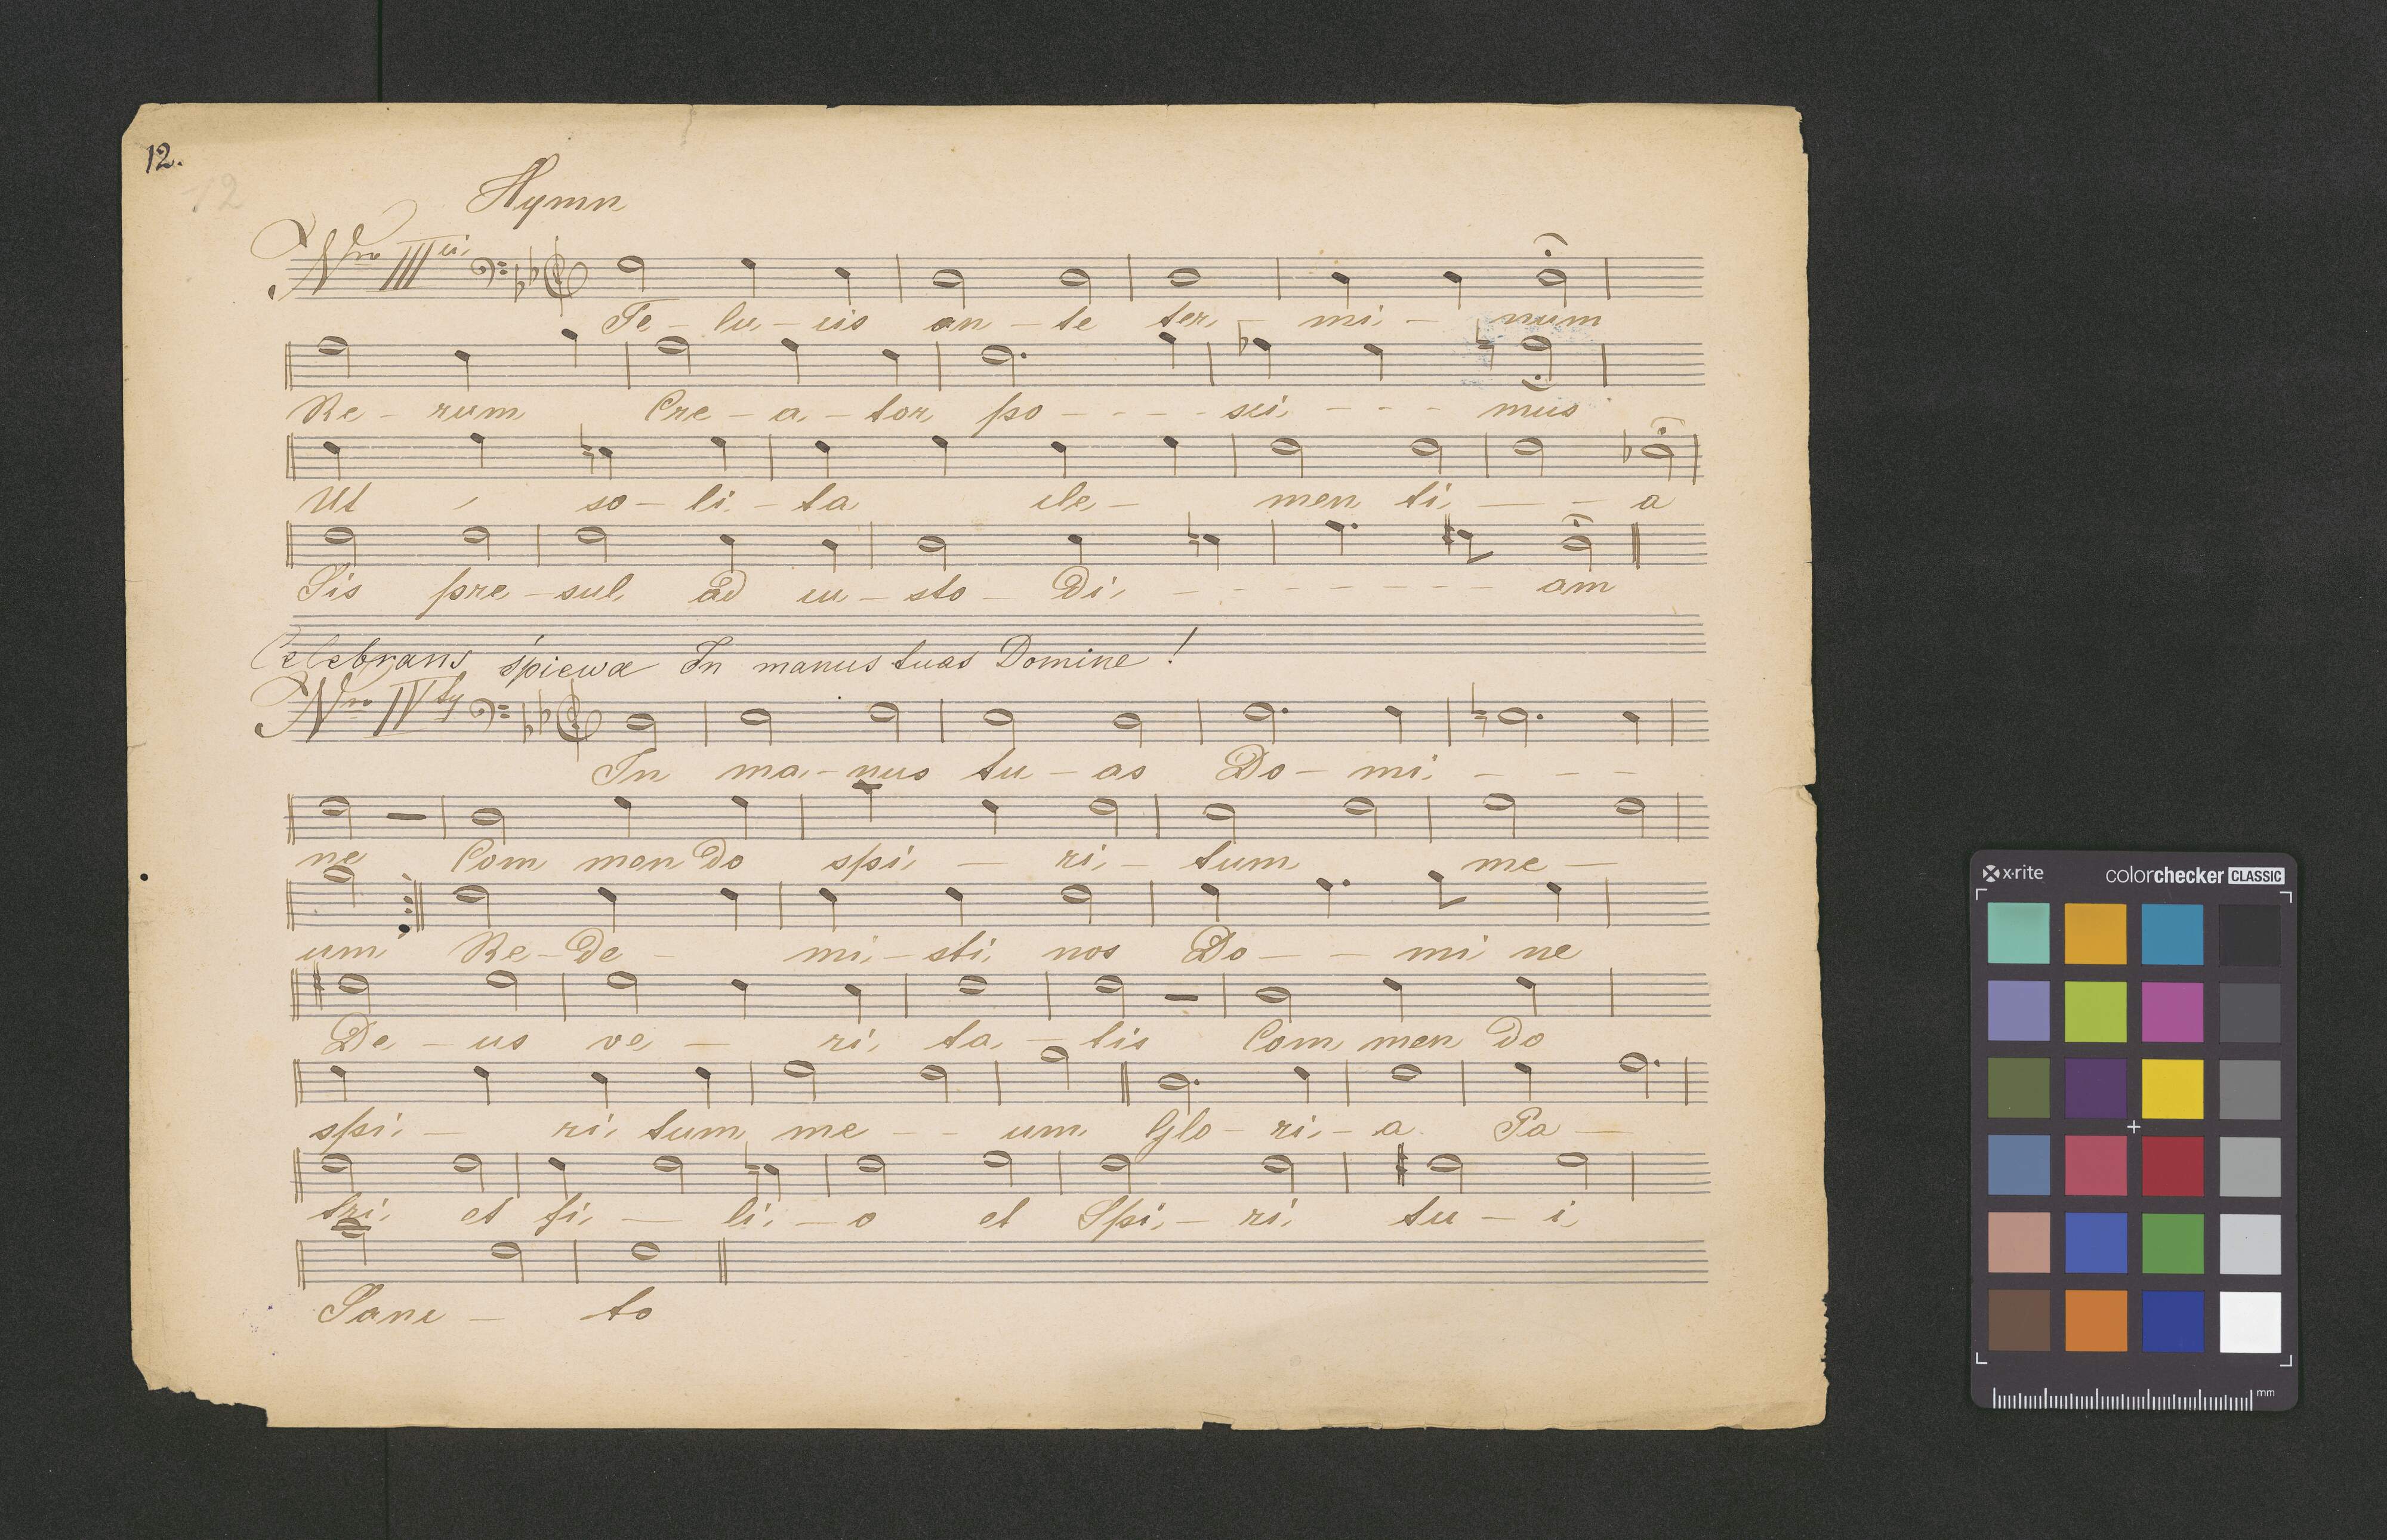 12.
12
Hymn
Nro III ci
Te - lu - cis an - te ter - mi - num
Re - rum Cre - a - tor po - - - - sci - - - mus
Ut so - li - ta cle - men ti - - a
Sis pre - sul ad cu - sto - Di - - - - - - am
Celebrans śpiewa In manus tuas Domine !
Nro IV ty
In ma - nus tu - as Do - mi - - -
ne Com men Do spi - ri - tum me -
um Re - De - mi - sti nos Do - - mi ne
De - us ve - ri ta - tis Com men Do
spi - ri tum me - - um Glo - ri - a Pa -
tri et fi - li - o et Spi - ri tu - i
Sanc - to
x-rite colorchecker CLASSIC
mm